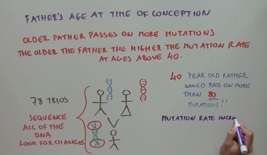 FATHER'S AGE AT TIME OF CONCEPTION
OLDER FATHER PASSES ON MORE MUTATIONS
THE OLDER THE FATHER THE HIGHER THE MUTATION RATE
AT AGES ABOVE 40.
78 TRIOS
SEQUENCE
ALL OF THE
DNA
LOOK FOR CHANGES
40 YEAR OLD FATHER
WOULD PASS ON MORE
THAN 80
MUTATIONS!!
MUTATION RATE INCRE